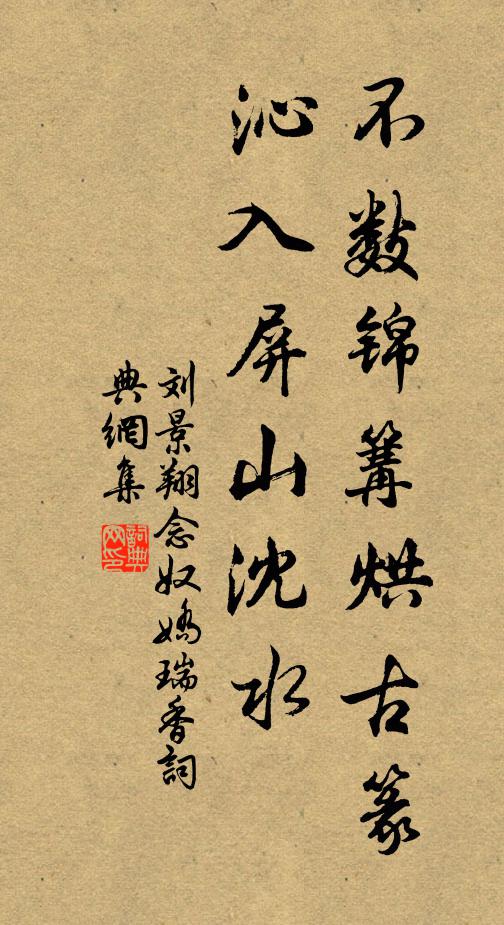 不数锦篝烘古篆
沁入屏山沈水
刘景翔念奴嬌瑞香詞
典網集
詞典网印